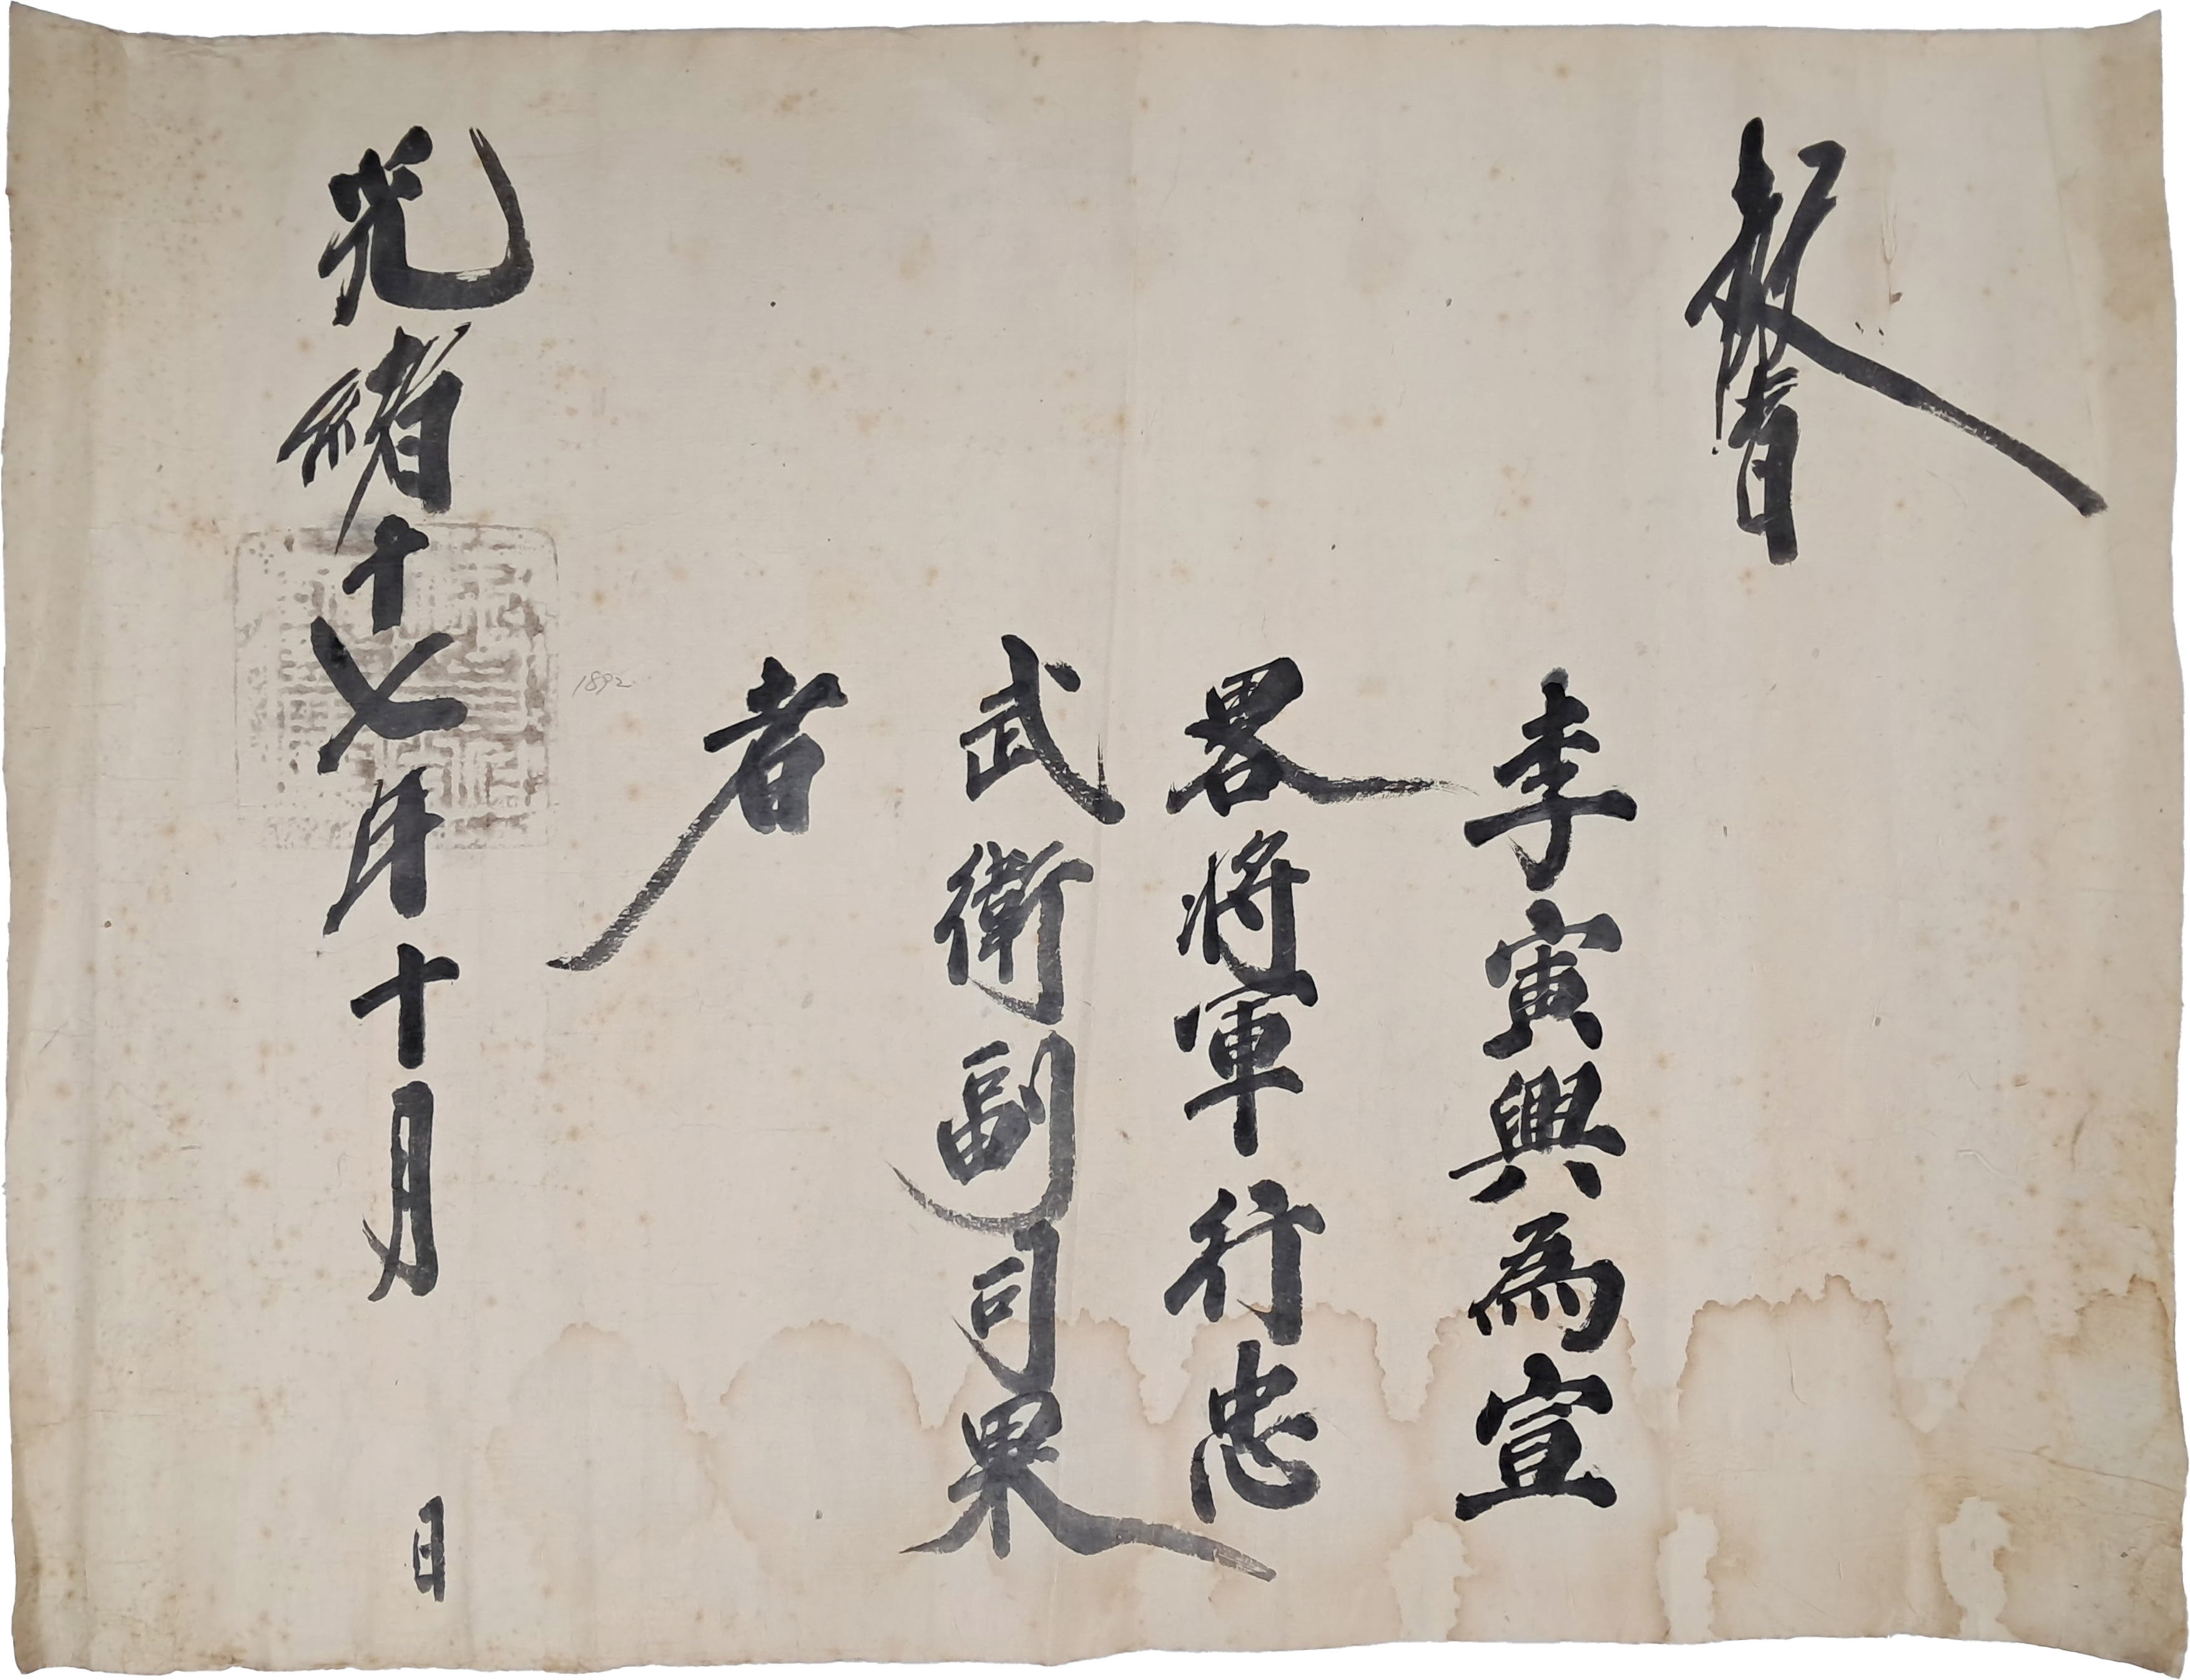 教旨
李寅興為宣
畧將軍行忠
武衛副司果
者
光緖十七年十月　日
1892